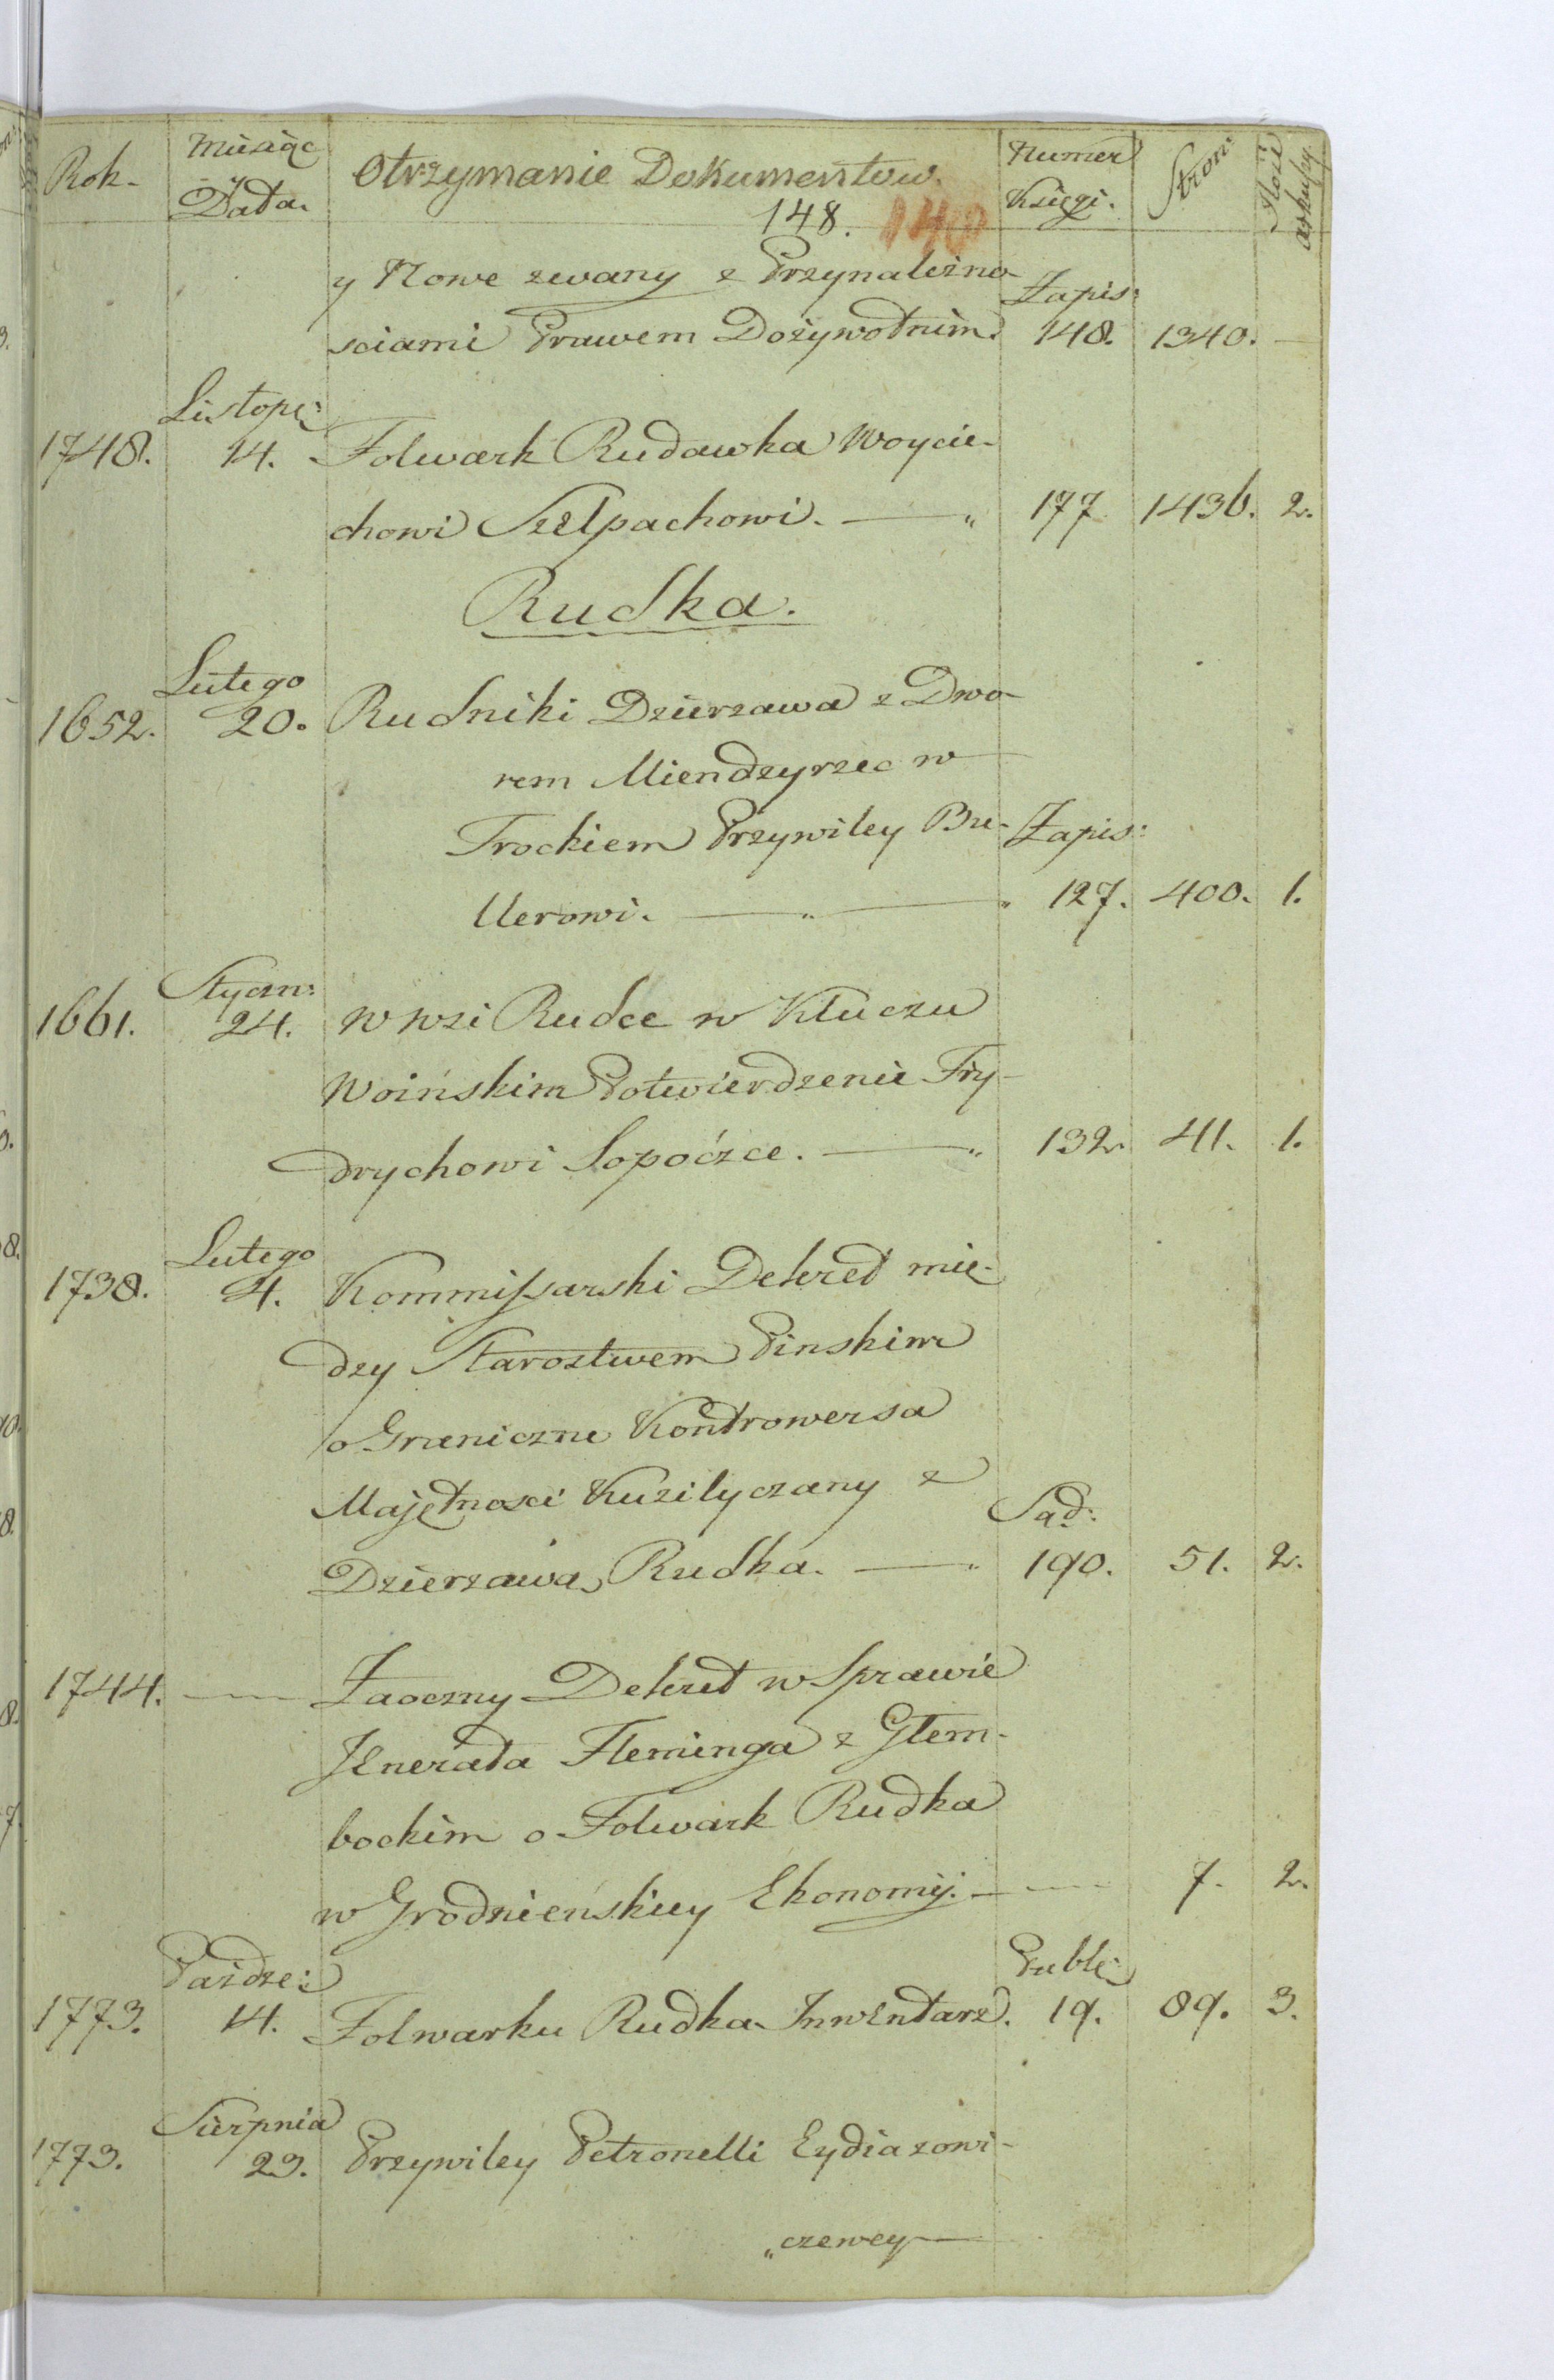 Rok. Miesiąc y Data. Otrzymanie Dokumentow. Numer Księgi. Stron: Ilość arkuszy
148. 140
y Nowe zwany z Przynależno- Zapis:
sciami Prawem Dożywotnim. 148. 1340. —
Listop:
1748. 14. Folwark Rudawka Woycie-
chowi Szelpachowi. — 177 1436. 2.
Rudka.
Lutego
1652. 20. Rudniki Dzierzawa z Dwo-
rem Miendzyrzec w
Trockiem Przywiley Bu- Zapis:
llerowi. — 127. 400. 1.
Styczn:
1661. 24. W wsi Rudce w Kluczu
Woińskim Potwierdzenie Fry-
drychowi Sopoćzce. — 132. 411. 1.
Lutego
1738. 4. Kommissarski Dekret mię-
dzy Starostwem Pinskim
o Graniczne Kontrowersa
Majętnosci Kuzilyczany z
Dzierzawą Rudka. — Sąd: 190. 51. 2.
1744. — Zaoczny Dekret w Sprawie
Jenerała Fleminga z Głem-
bockim o Folwark Rudka
w Grodnieńskiey Ekonomij. — 7. 2.
Paidze: Publ:
1773. 14. Folwarku Rudka Inwentarz. 19. 89. 3.
Sierpnia
1773. 23. Przywiley Petronelli Eydiazowi-
„czewey